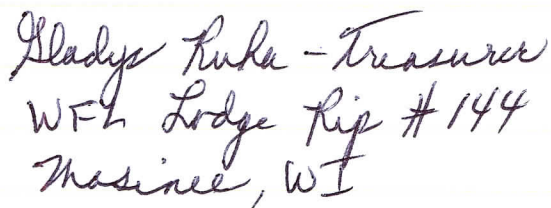 Gladys Ruha - Treasurer
WFL Lodge Rip # 144
Mosinee, WI